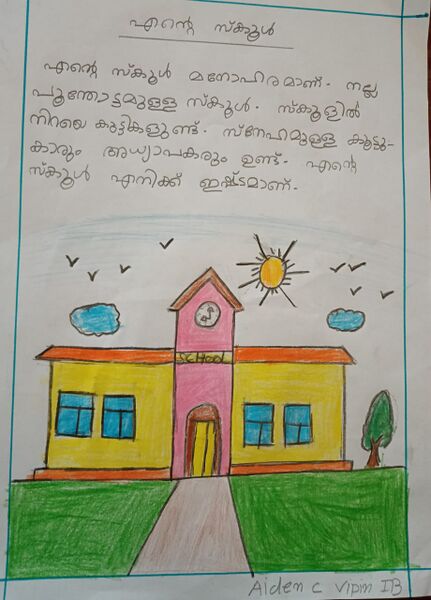 എന്റെ സ്കൂൾ
എന്റെ സ്കൂൾ മനോഹരമാണ്. നല്ല
പൂന്തോട്ടമുള്ള സ്കൂൾ. സ്കൂളിൽ
നിറയെ കുട്ടികളുണ്ട്. സ്നേഹമുള്ള കൂട്ടു-
കാരും അധ്യാപകരും ഉണ്ട്. എന്റെ
സ്കൂൾ എനിക്ക് ഇഷ്ടമാണ്.
SCHOOL
Aiden C Vipin IB